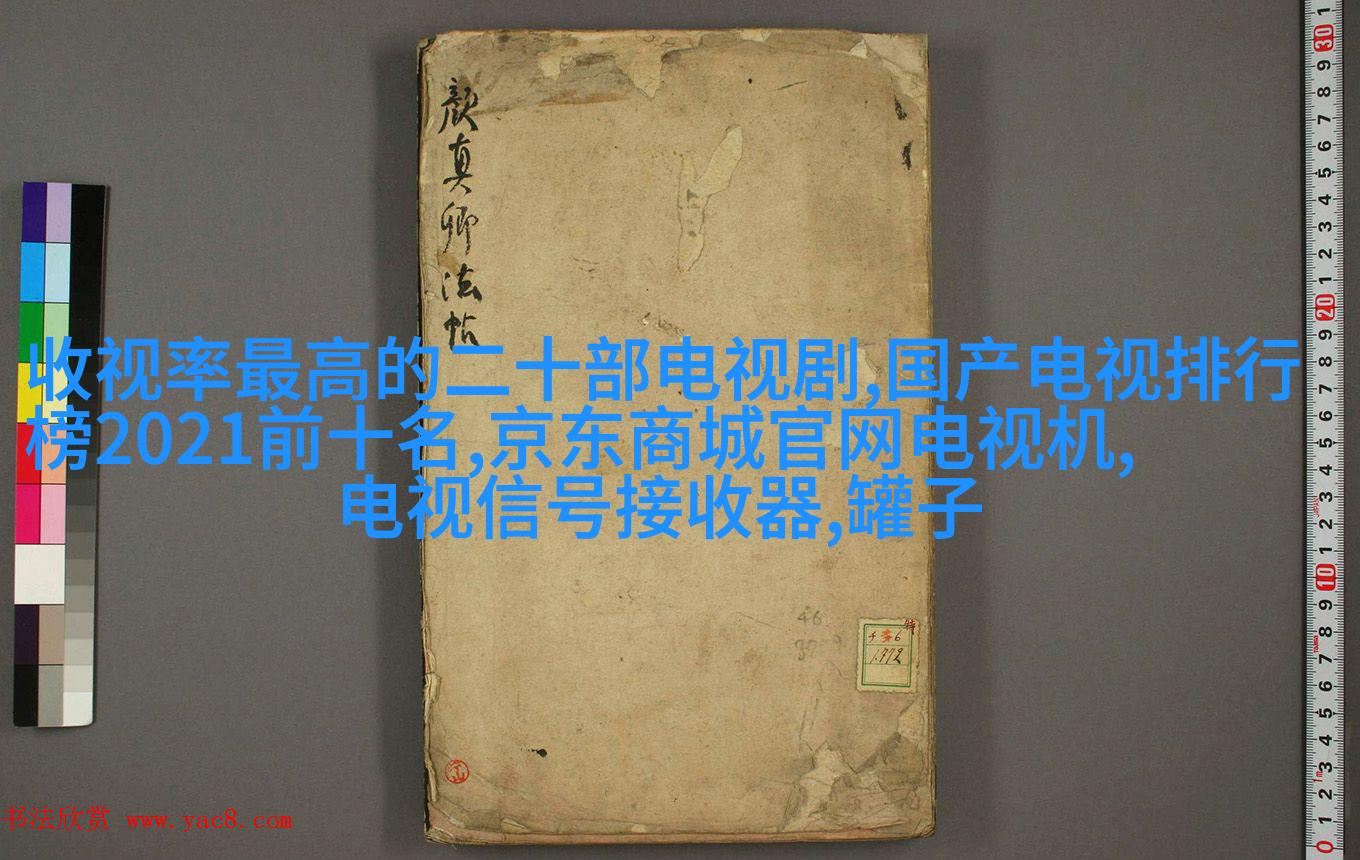 顔真卿法帖
收视率最高的二十部电视剧,国产电视排行
榜2021前十名,京东商城官网电视机,
电视信号接收器,罐子
46
特
1772
书法欣赏 www.yac8.com